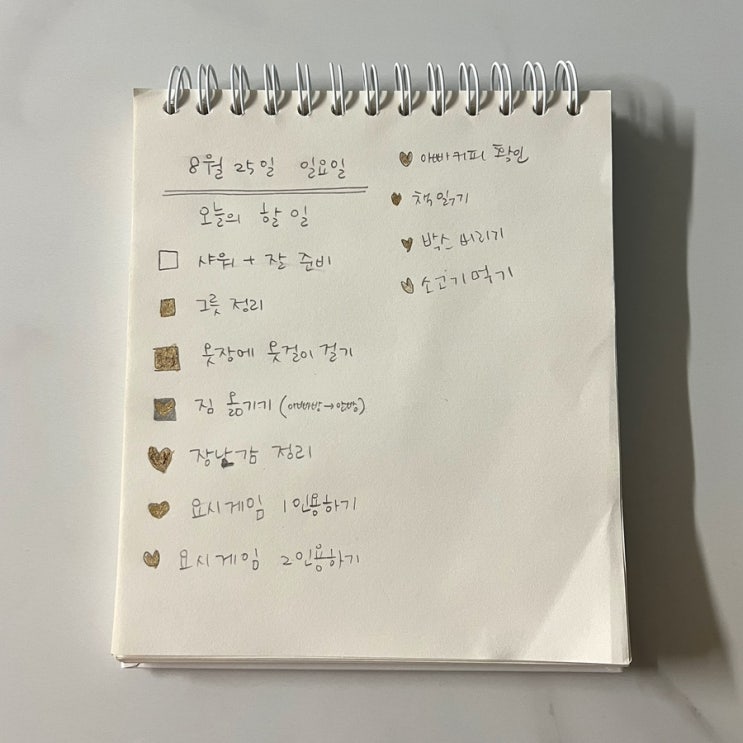 8월 25일 일요일
오늘의 할 일
샤워 + 잘 준비
그릇 정리
옷장에 옷걸이 걸기
짐 옮기기 (아빠방→안방)
장난감 정리
요시게임 1인용하기
요시게임 2인용하기
아빠커피 확인
책읽기
박스 버리기
소고기먹기